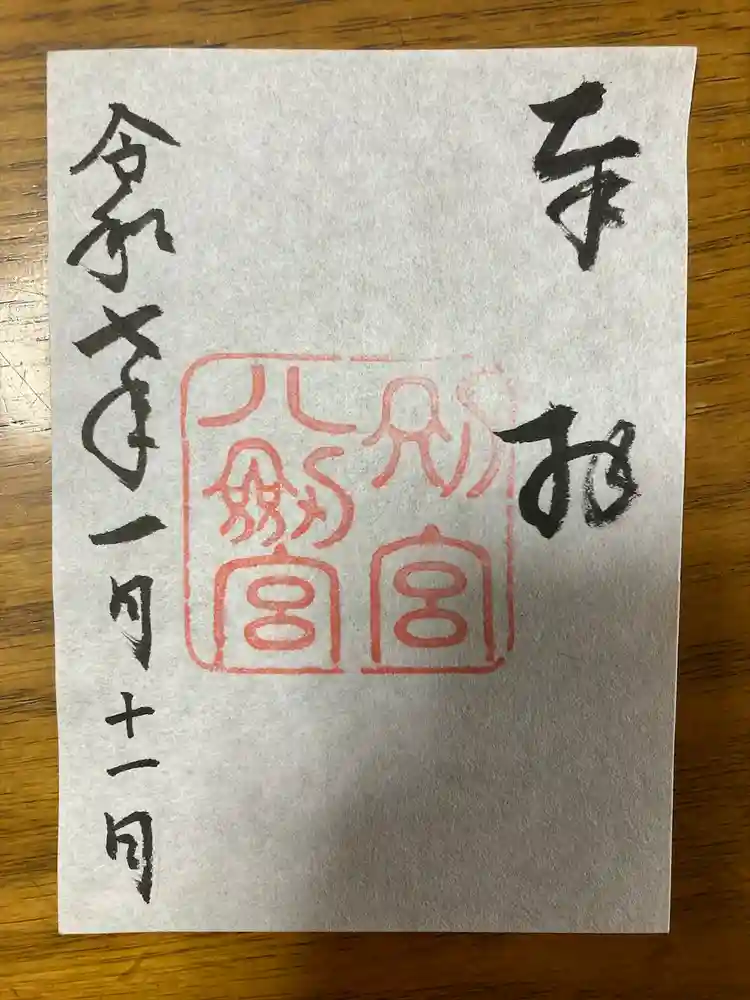 奉拝
別宮
八剱宮
令和七年一月十一日